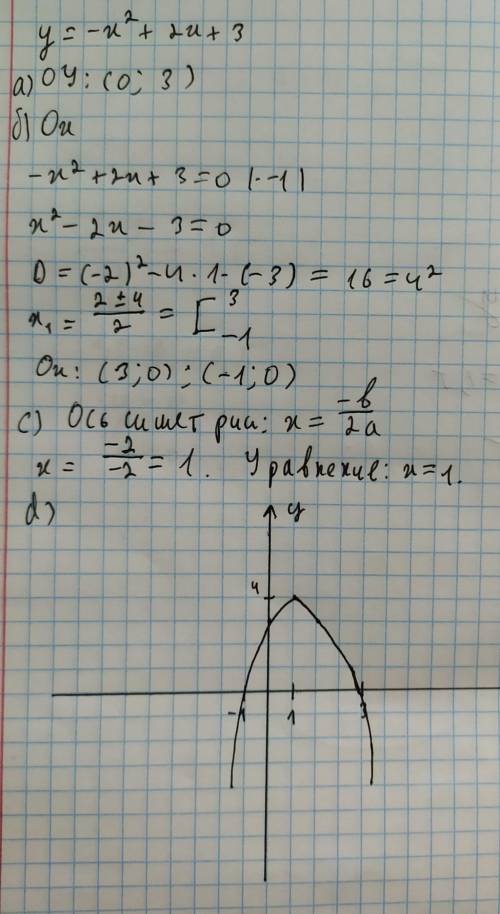 y = -x² + 2x + 3
a) ОУ: (0; 3)
б) Ох
-x² + 2x + 3 = 0 |·-1|
x² - 2x - 3 = 0
D = (-2)² - 4 · 1 · (-3) = 16 = 4²
x₁ = \frac{2 ± 4}{2} = [ 3 -1
Ох: (3; 0) ; (-1; 0)
c) Ось симетрии: x = \frac{-b}{2a}
x = \frac{-2}{-2} = 1. Уравнение: x = 1.
d)
y
4
-1 1 3